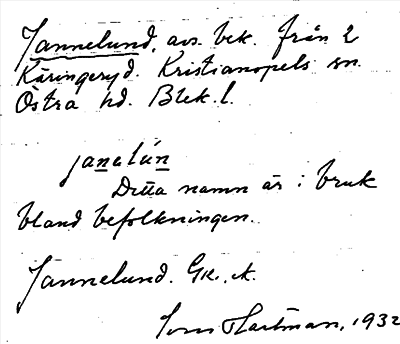 Jannelund, avs. bek. från 2
Käringeryd. Kristianopels sn.
Östra hd. Blek. l.
janalún
Detta namn är i bruk
bland befolkningen.
Jannelund. Gk., A.
Hartman, 1932